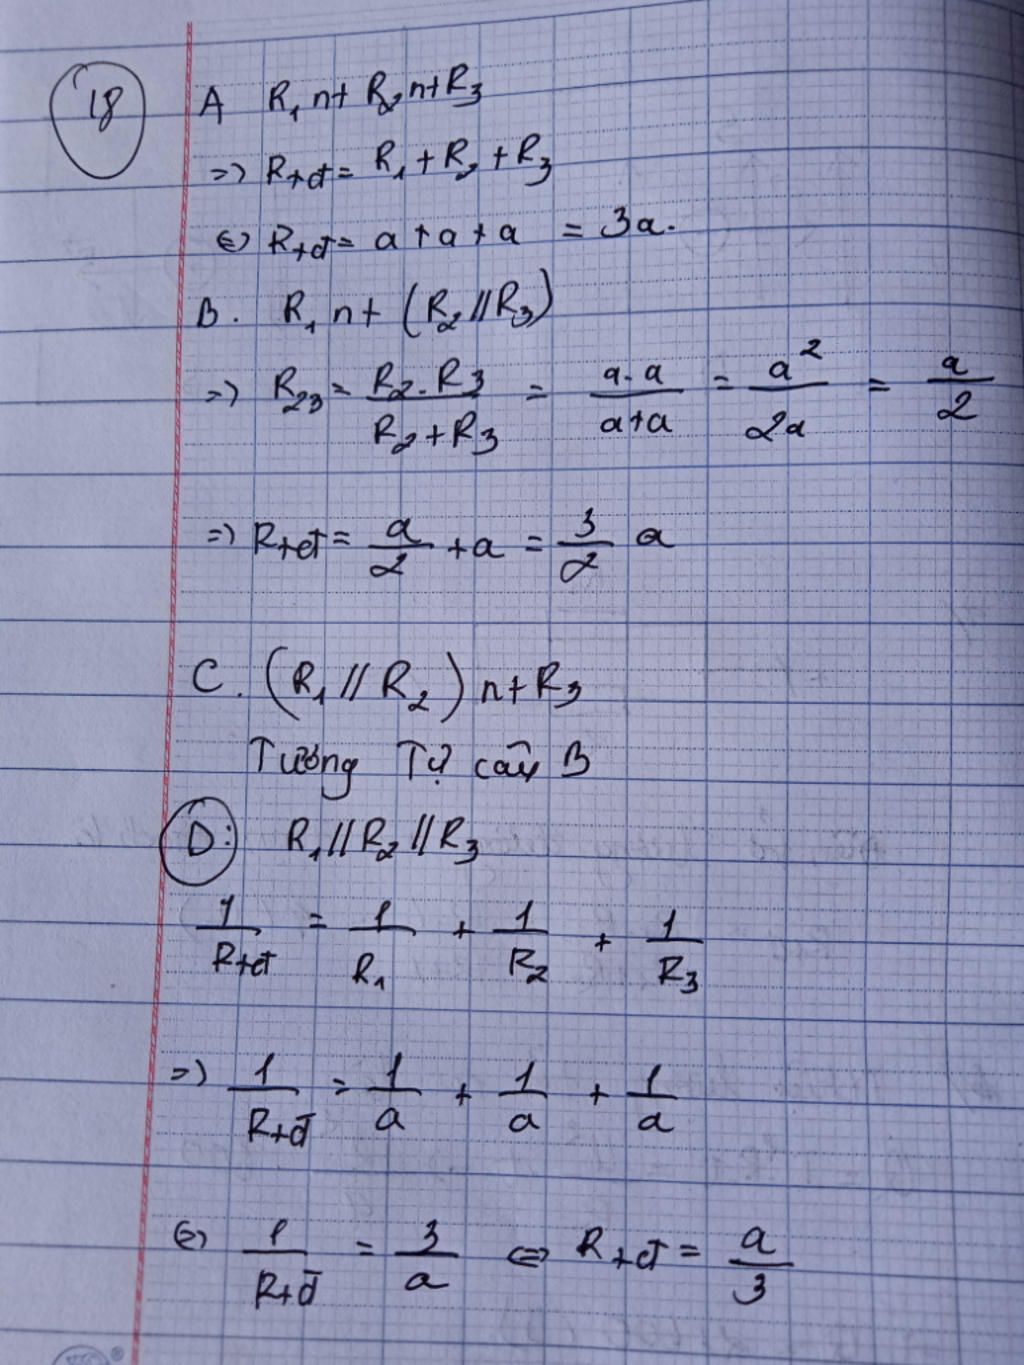 18
A R₁ nt R₂ nt R₃
=> Rtđ = R₁ + R₂ + R₃
<=> Rtđ = a + a + a = 3a.
B. R₁ nt (R₂ // R₃)
=> R₂₃ = (R₂ . R₃)/(R₂ + R₃) = (a . a)/(a + a) = a²/2a = a/2
=> Rtđ = a/2 + a = 3/2 a
C. (R₁ // R₂) nt R₃
Tương Tự câu B
D: R₁ // R₂ // R₃
1/Rtđ = 1/R₁ + 1/R₂ + 1/R₃
=> 1/Rtđ = 1/a + 1/a + 1/a
<=> 1/Rtđ = 3/a <=> Rtđ = a/3